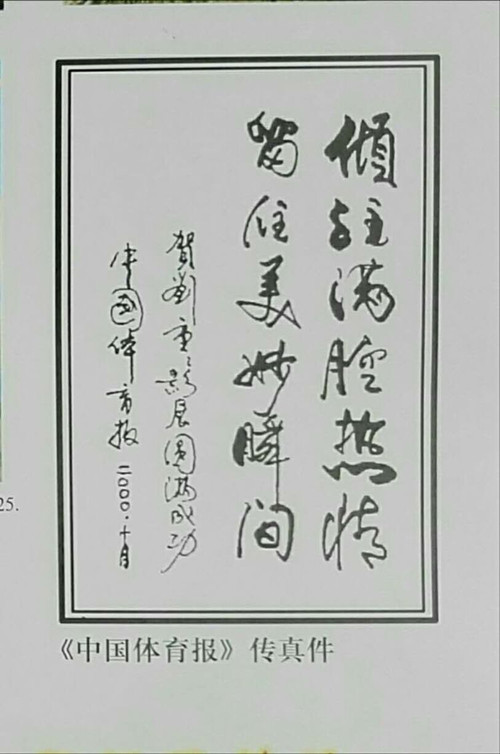 倾注满腔热情
留住美妙瞬间
贺刘重影展圆满成功
中国体育报 二〇〇〇.十月
25.
《中国体育报》传真件